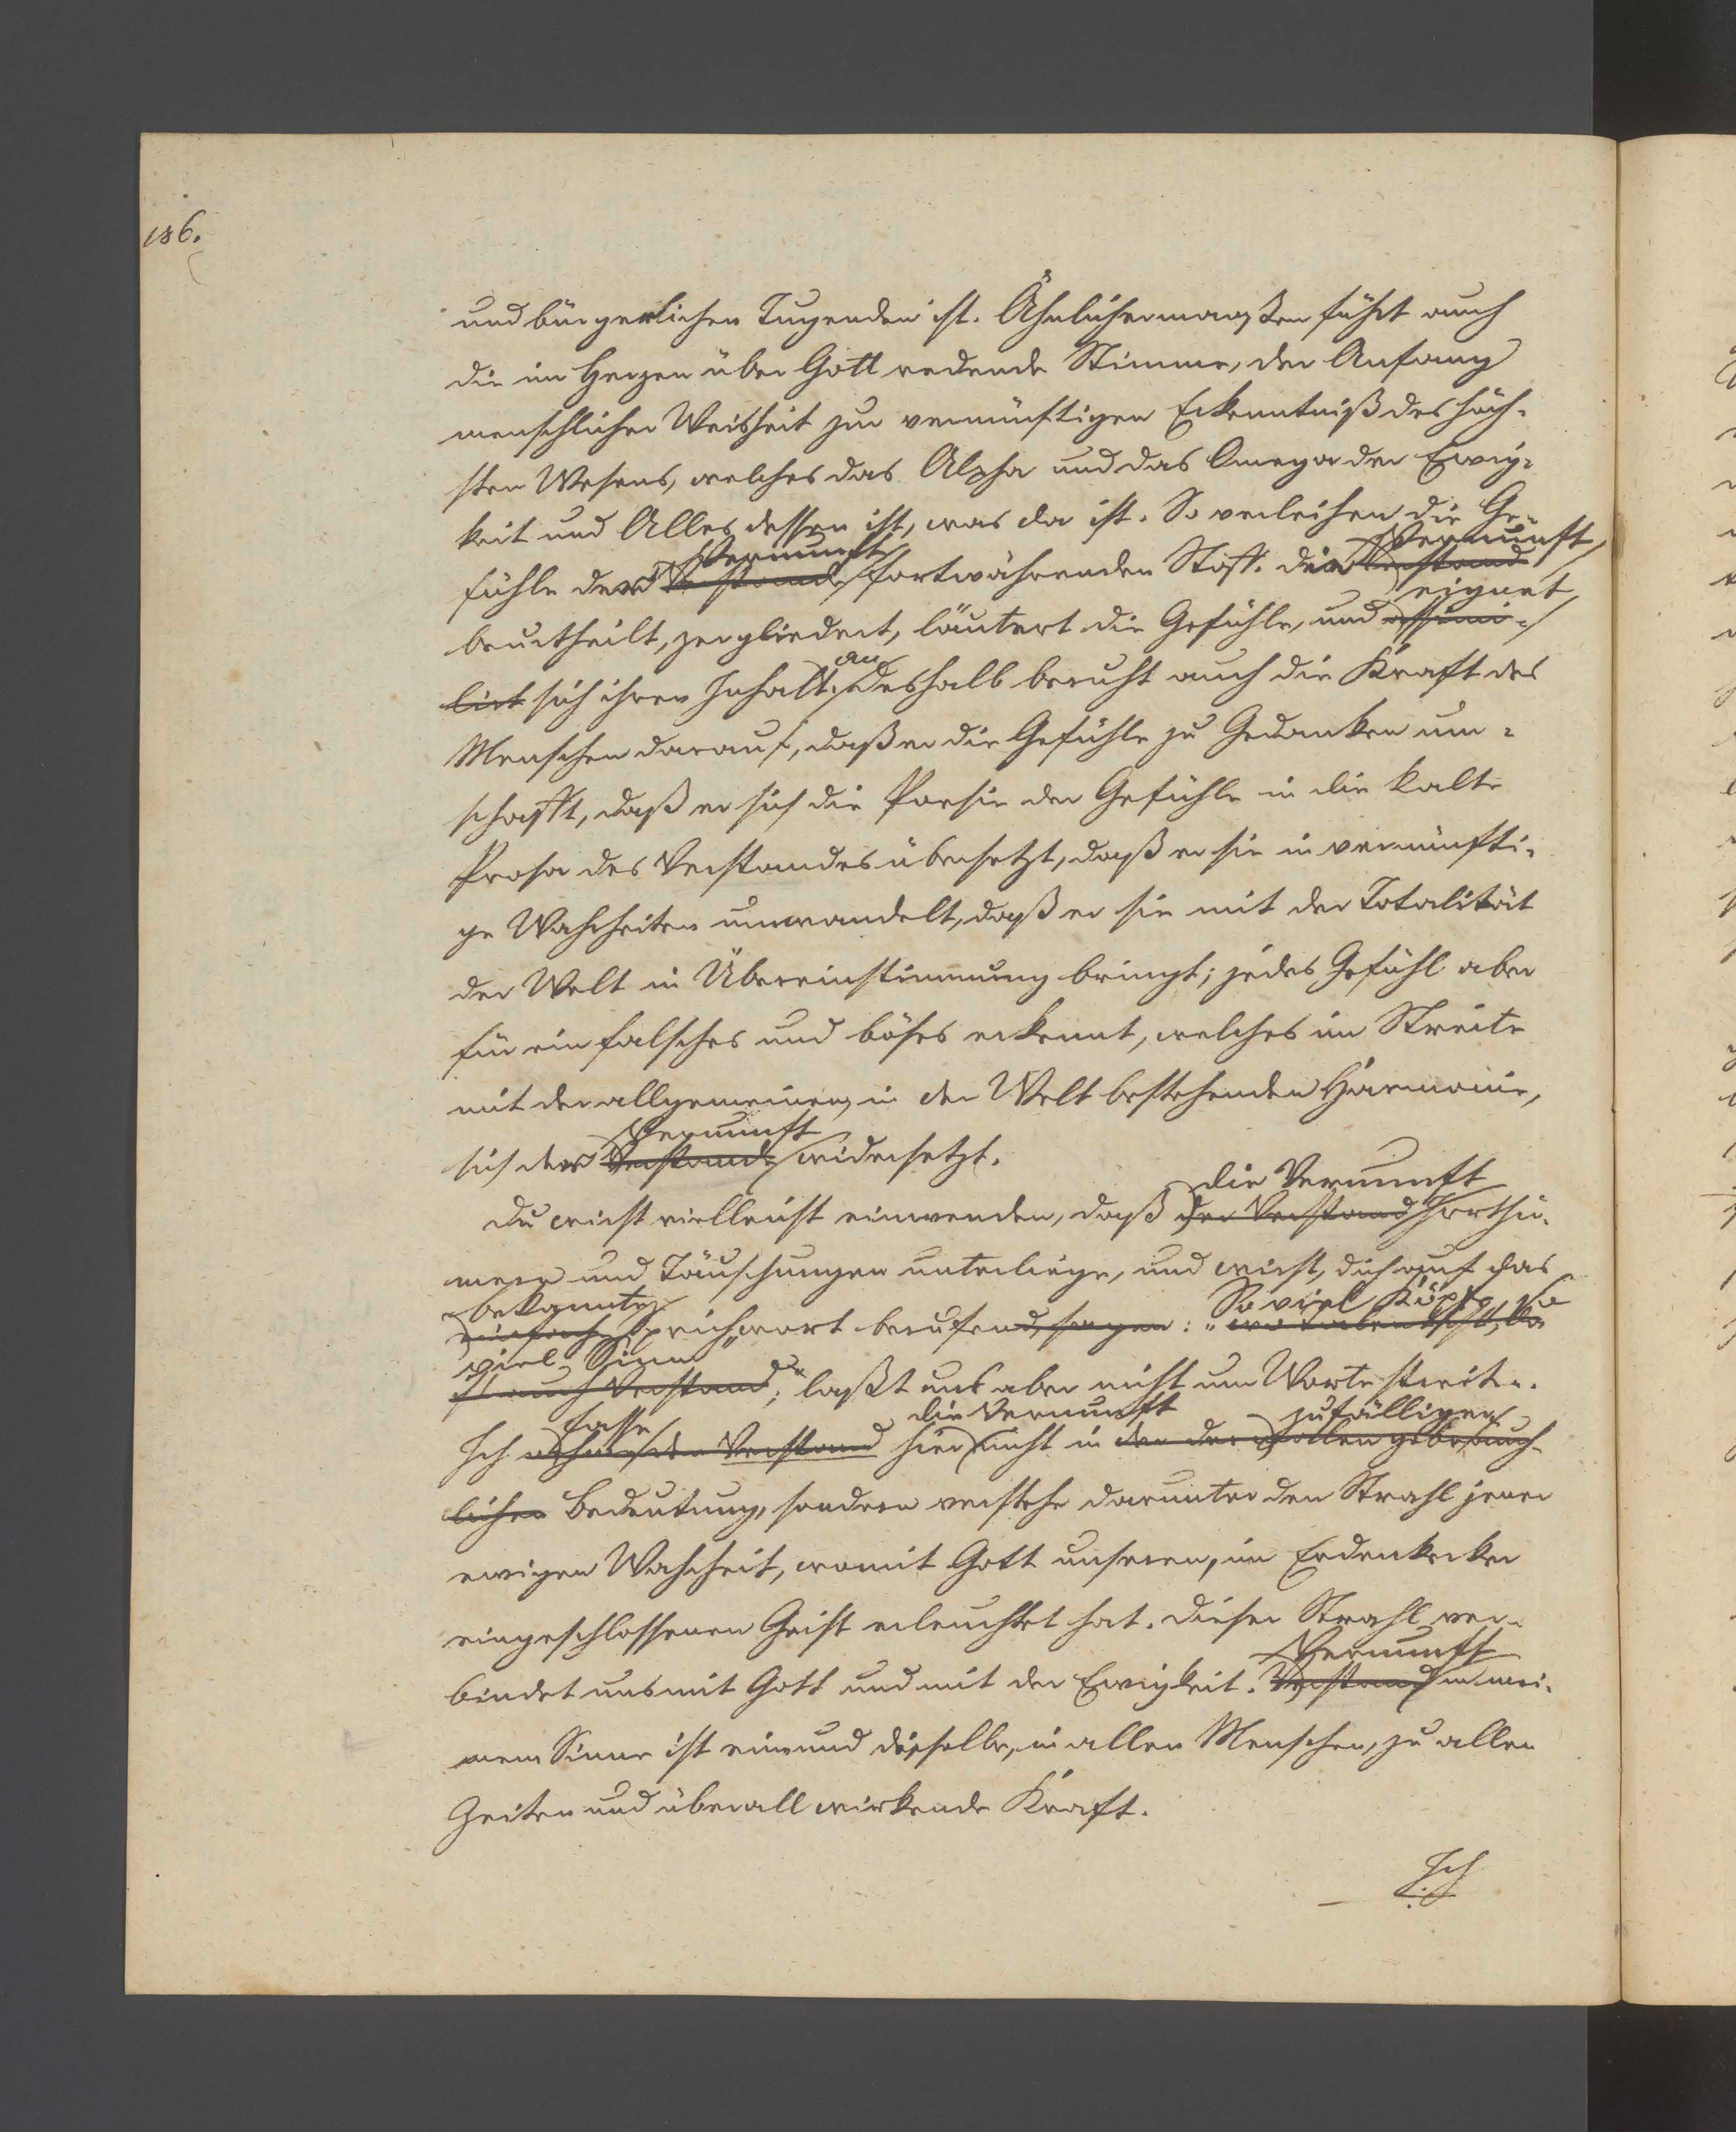 186.
und bürgerlichen Tugenden ist. Ähnlichermaaßen führt auch
die im Herzen über Gott redende Stimme, der Anfang
menschlicher Weisheit zur vernünftigen Erkenntniß des höch-
sten Wesens, welches das Alpha und das Omega der Ewig-
keit und Alles dessen ist, was da ist. So verleihen die Ge-
Vernunft Vernunft
fühle der Verstande fortwährenden Stoff. der Verstand
eignet
beurtheilt, zergliedert, läutert die Gefühle, und assimi-
an
lirt sich ihren Inhalt. Deshalb beruht auch die Kraft des
Menschen darauf, daß er die Gefühle zu Gedanken um-
schafft, daß er sich die Poesie der Gefühle in die kalte
Prosa des Verstandes übersetzt, daß er sie in vernünfti-
ge Wahrheiten umwandelt, daß er sie mit der Totalität
der Welt in Übereinstimmung bringt; jedes Gefühl aber
für ein falsches und böses erkennt, welches im Streite
mit der allgemeinen, in der Welt bestehenden Harmonie,
Vernunft
sich der Verstande widersetzt.
die Vernunft
Du wirst vielleicht einwenden, daß der Verstand Irrthü-
mern und Täuschungen unterliege, und wirst, dich auf das
bekannte So viel Köpfe, so
einfache Sprichwort berufend, sagen: „wo Leben ist, da
viel Sinn“
ist auch Verstand; laßt uns aber nicht um Worte streiten.
fasse die Vernunft zufälligen
Ich nehme den Verstand hier nicht in der gebräuch-
lichen Bedeutung, sondern verstehe darunter den Strahl jener
ewigen Wahrheit, womit Gott unseren, im Erdenkerker
eingeschlossenen Geist erleuchtet hat. Dieser Strahl ver-
Vernunft
bindet uns mit Gott und mit der Ewigkeit. Verstand in mei-
nem Sinne ist ein und dieselbe, in allen Menschen, zu allen
Zeiten und überall wirkende Kraft.
Ich